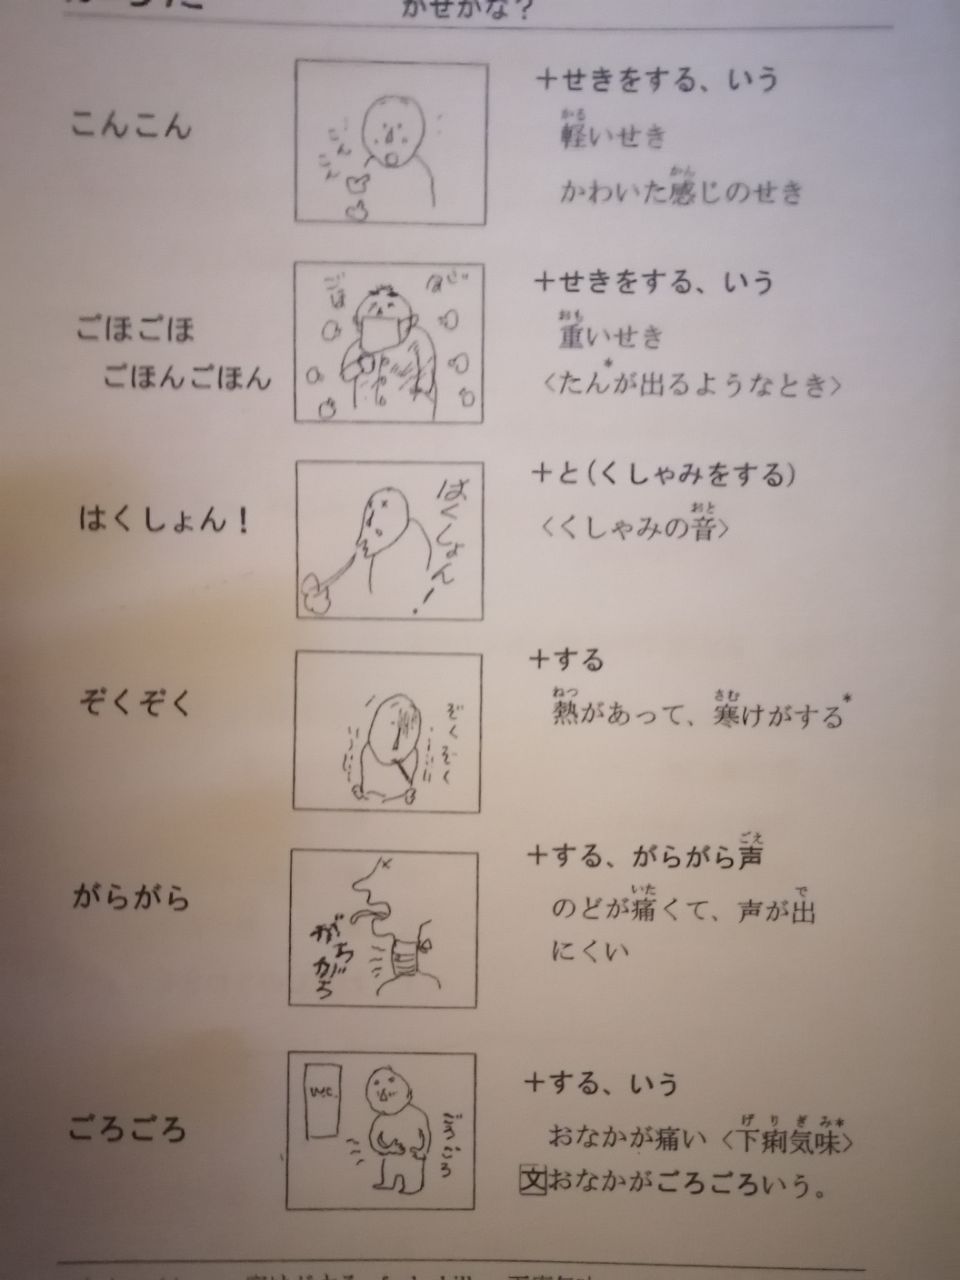 かぜかな？
こんこん
こん
こん
＋せきをする、いう
かる
軽いせき
かん
かわいた感じのせき
ごほごほ
ごほんごほん
ごほ
＋せきをする、いう
おも
重いせき
〈たん*が出るようなとき〉
はくしょん！
はくしょん！
＋と（くしゃみをする）
おと
〈くしゃみの音〉
ぞくぞく
ぞくぞく
＋する
ねつ さむ
熱があって、寒けがする*
がらがら
がらがら
ごえ
＋する、がらがら声
いた で
のどが痛くて、声が出
にくい
ごろごろ
W.C.
ごろごろ
＋する、いう
げりぎみ*
おなかが痛い〈下痢気味〉
文おなかがごろごろいう。